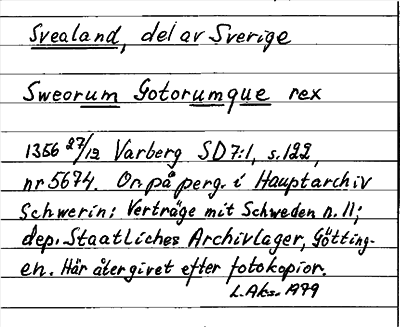 Svealand, del av Sverige
Sweorum Gotorumque rex
1356 27/12 Varberg SD7:1, s.122,
nr 5674. Or på perg. i Hauptarchiv
Schwerin: Verträge mit Schweden n. 11;
dep. Staatliches Archivlager, Götting-
en. Här återgivet efter fotokopior.
L.Aks. 1979